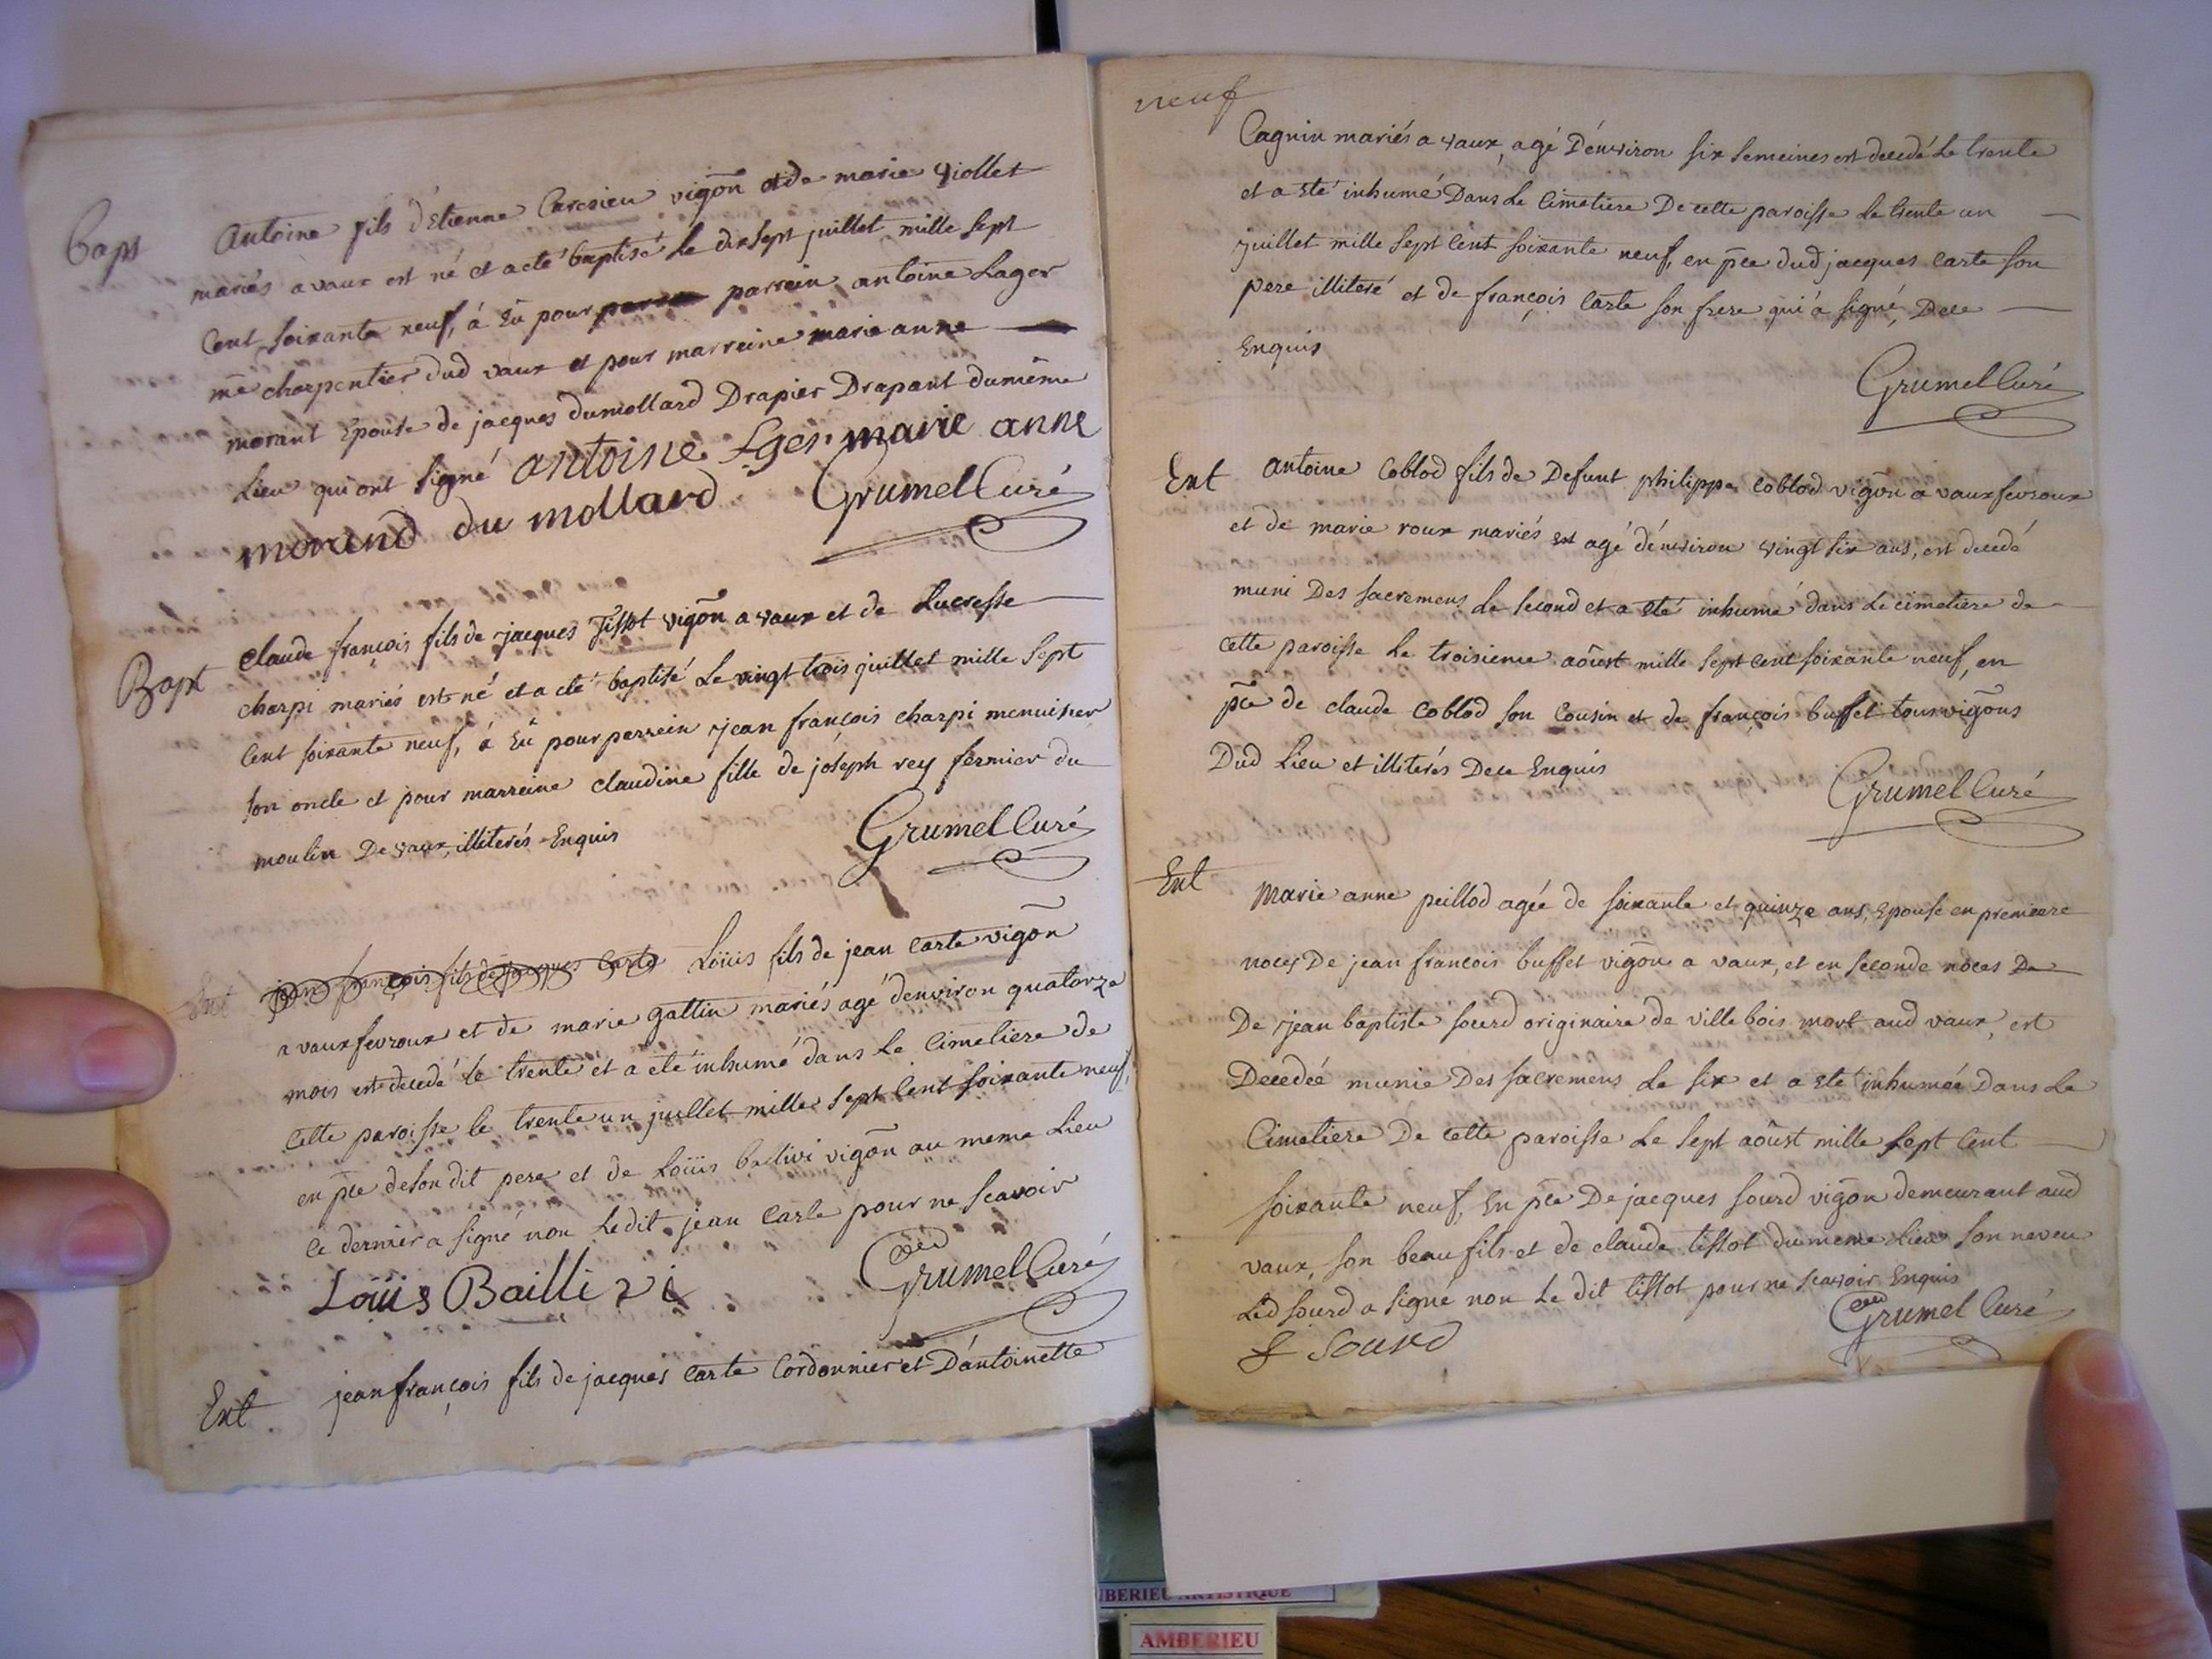 Bapt Antoine fils d'Etienne Carcsieu vigōn et de marie Giollet
mariés a vaux est né et a eté baptisé le dix sept juillet mille sept
Cent soixante neuf, á Eû pour parrein antoine Lager
me charpentier dud vaux et pour marreine marie anne
morant Epouse de jacques dumollard Drapier Drapant du même
Lieu qui ont signé antoine Lger marie anne
morand du mollard Grumel Curé
Bapt Claude françois fils de jacques Tissot vigōn a vaux et de Lucresse
charpi mariés est né et a eté baptisé Le vingt trois juillet mille sept
Cent soixante neuf, á Eû pour parrein jean françois charpi menuisier
son oncle et pour marreine claudine fille de joseph rey fermier du
moulin De vaux, illiterés Enquis
Grumel Curé
Ent jean françois fils de jacques Carte Loüis fils de jean Carte vigōn
a vaux fevroux et de marie gattin mariés agé d'environ quatorze
mois est decedé le trente et a eté inhumé dans Le Cimetiere de
Cette paroisse le trente un juillet mille sept Cent soixante neuf,
en pce de son dit pere et de Loüis ballivi vigōn au meme Lieu
Ce dernier a signé non Ledit jean Carte pour ne scavoir
Loüis Baillivi Grumel Curé
Ent jean françois fils de jacques Carte Cordonnier et D'antoinette
neuf
Cagnin mariés a vaux, agé D'environ six semeines est decedé Le trente
et a eté inhumé Dans Le Cimetiere De cette paroisse Le trente un
juillet mille sept Cent soixante neuf, en pce dud jacques Carte son
pere illiteré et de françois Carte son frere qui á signé, Dece
Enquis
Grumel Curé
Ent antoine Coblod fils de Defunt philippe Coblod vigōn a vaux fevroux
et de marie roux mariés agé d'environ vingt six ans, est decedé
muni Des sacremens Le second et a eté inhumé dans Le cimetiere de
Cette paroisse Le troisieme aôust mille sept Cent soixante neuf, en
pce de claude Coblod son Cousin et de françois buffet tous vigōns
Dud Lieu et illiterés Dece Enquis
Grumel Curé
Ent Marie anne peillod agée de soixante et quinze ans, Epouse en premiere
noces De jean françois buffet vigōn a vaux, et en seconde noces De
De jean baptiste sourd originaire de villebois mort aud vaux, est
Decedeé munie Des sacremens Le six et a eté inhumée Dans Le
Cimetiere De Cette paroisse Le sept aôust mille sept Cent
soixante neuf, En pce De jacques sourd vigōn demeurant aud
vaux, son beau fils et de claude tissot du meme Lieu son neveu
Led sourd a signé non Le dit tissot pour ne scavoir Enquis
J Sourd Grumel Curé
UBERIEU ARTISTIQUE
AMBERIEU